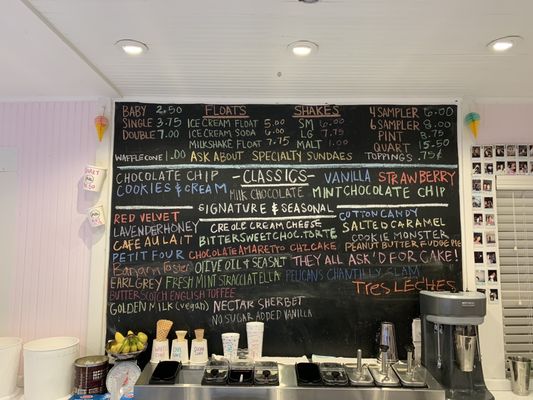 BABY 2.50
SINGLE 3.75
DOUBLE 7.00
WAFFLE CONE 1.00
FLOATS
ICE CREAM FLOAT 5.00
ICE CREAM SODA 6.00
MILKSHAKE FLOAT 7.75
ASK ABOUT SPECIALTY SUNDAES
SHAKES
SM
LG 7.75
MALT 1.00
4 SAMPLER 6.00
6 SAMPLER 8.00
PINT 8.75
QUART 15.50
TOPPINGS .75¢
CLASSICS
CHOCOLATE CHIP VANILLA STRAWBERRY
COOKIES & CREAM MILK CHOCOLATE MINT CHOCOLATE CHIP
SIGNATURE & SEASONAL
RED VELVET CREOLE CREAM CHEESE COTTON CANDY
LAVENDER HONEY BITTERSWEET CHOC. TORTE SALTED CARAMEL
CAFE AU LAIT CHOCOLATE AMARETTO CHZCAKE COOKIE MONSTER
PETIT FOUR PEANUT BUTTER FUDGE PIE
Bananas Foster OLIVE OIL & SEA SALT THEY ALL ASK'D FOR CAKE!
EARL GREY FRESH MINT STRACCIATELLA PELICANS CHANTILLY SLAM
BUTTERSCOTCH ENGLISH TOFFEE TRES LECHES
GOLDEN MILK (vegan) NECTAR SHERBET
NO SUGAR ADDED VANILLA